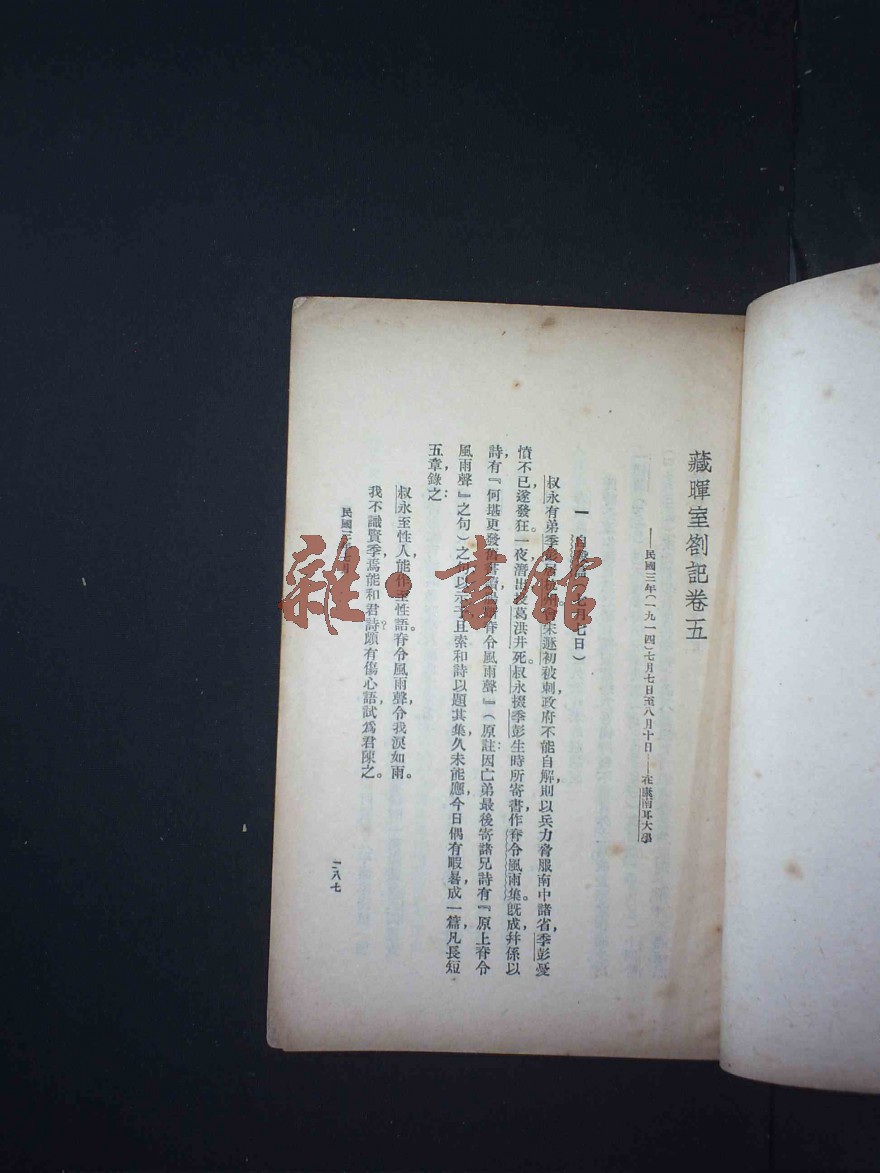 藏暉室劄記卷五
——民國三年(一九一四)七月七日至八月十日——在康南耳大學
一 七月七日)
叔永有弟季彭宋遯初被刺,政府不能自解,則以兵力脅服南中諸省,季彭憂
憤不已,遂發狂,一夜,潛出投葛洪井死。叔永掇季彭生時所寄書作脊令風雨集。旣成,幷係以
詩,有『何堪更發脊令風雨聲』(原註:因亡弟最後寄諸兄詩有『原上脊令
風雨聲』之句)之以示予,且索和詩以題其集,久未能應,今日偶有暇,晷成一篇,凡長短
五章,錄之:
叔永至性人,能作至性語。脊令風雨聲,令我淚如雨。
我不識賢季,焉能和君詩?頗有傷心語,試爲君陳之。
民國三年七月
二八七
雜·書館